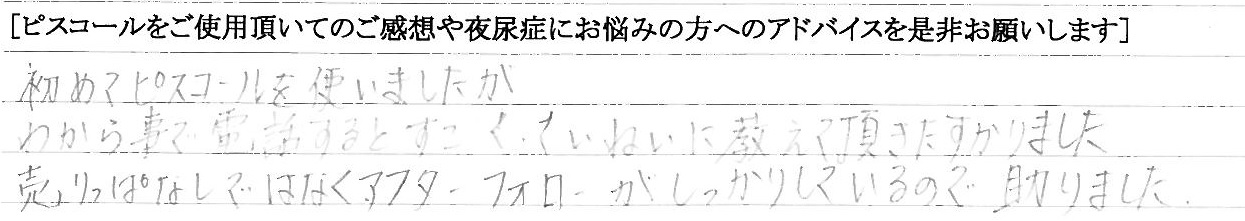 [ピスコールをご使用頂いてのご感想や夜尿症にお悩みの方へのアドバイスを是非お願いします]
初めてピスコールを使いましたが
わから事で電話するとすごくていねいに教えて頂きたすかりました
売りっぱなしではなくアフターフォローがしっかりしているので助りました.